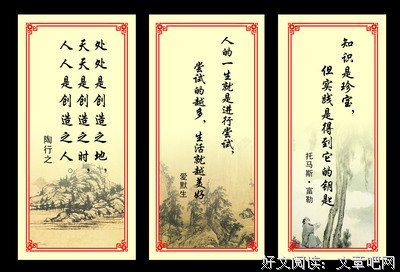 处处是创造之地，
天天是创造之时，
人人是创造之人。
陶行之
人的一生就是进行尝试，
尝试的越多，生活就越美好
爱默生
知识是珍宝，
但实践是得到它的钥匙
托马斯·富勒
好文阅读：文章吧网